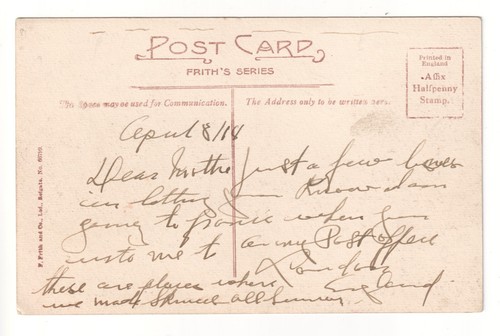 POST CARD
FRITH'S SERIES
Printed in
England
Affix
Halfpenny
Stamp.
This Space may be used for Communication.
The Address only to be written here.
April 8/18
Dear Mother Just a few lines
in letting you Know I am
going to france when you
write me to Army Post office
London
England
these are places where
we made all
F. Frith and Co., Ltd., Reigate. No.